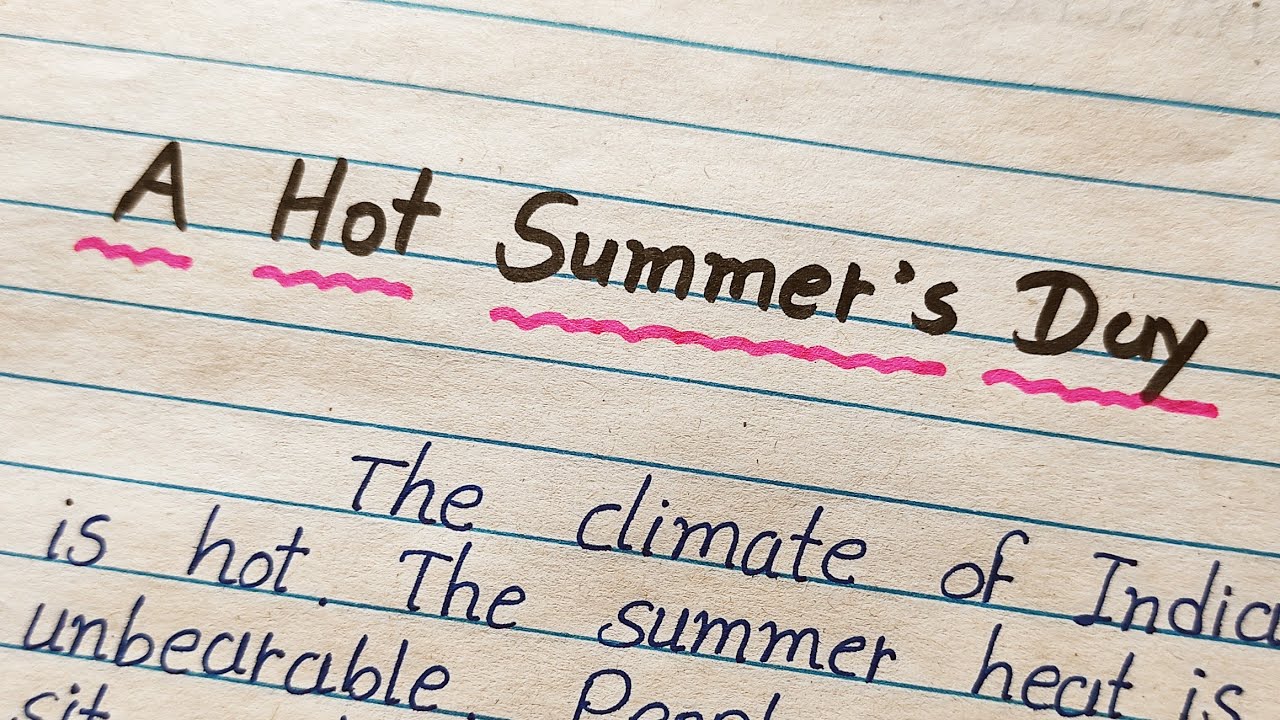 A Hot Summer's Day
The climate of India
is hot. The summer heat is
unbearable. People
sit